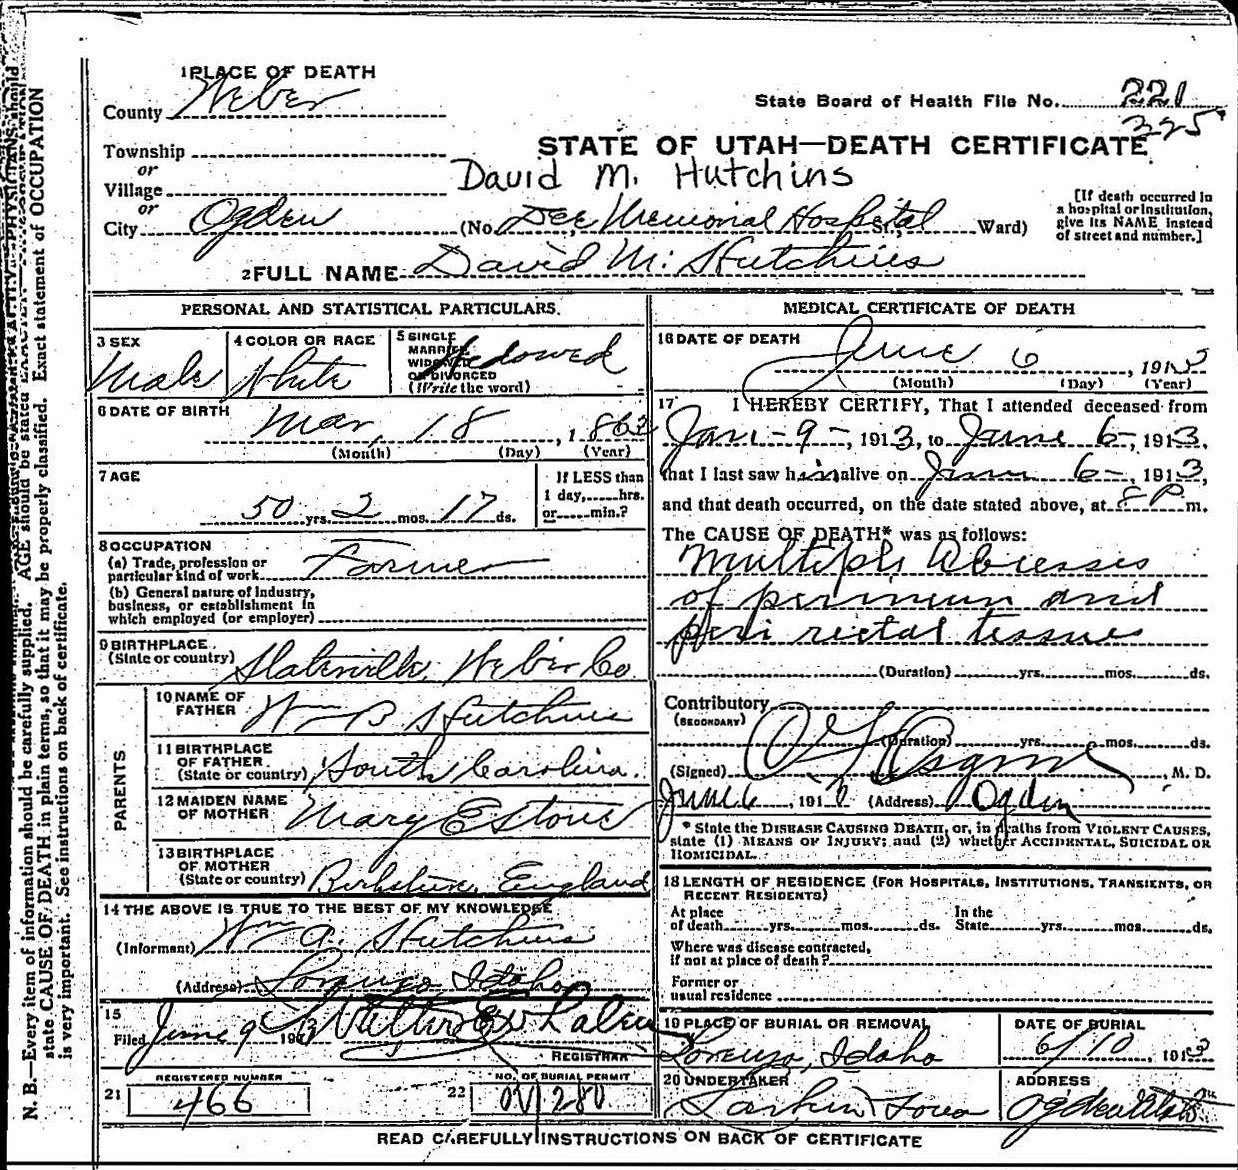 1 PLACE OF DEATH
County Weber
State Board of Health File No. 221
325
Township
or
STATE OF UTAH—DEATH CERTIFICATE
Village
David M. Hutchins
or
City Ogden (No. Dee Memorial Hospital St.; Ward)
[If death occurred in a hospital or institution, give its NAME instead of street and number.]
2 FULL NAME David M. Hutchins
PERSONAL AND STATISTICAL PARTICULARS.
3 SEX
Male
4 COLOR OR RACE
White
5 SINGLE
MARRIED
WIDOWED
OR DIVORCED
(Write the word)
Widowed
6 DATE OF BIRTH
Mar. 18, 1863
(Month) (Day) (Year)
7 AGE
50 yrs. 2 mos. 17 ds.
If LESS than
1 day, hrs.
or min.?
8 OCCUPATION
(a) Trade, profession or
particular kind of work Farmer
(b) General nature of industry,
business, or establishment in
which employed (or employer)
9 BIRTHPLACE
(State or country) Slaterville, Weber Co
PARENTS
10 NAME OF
FATHER Wm B Hutchins
11 BIRTHPLACE
OF FATHER
(State or country) South Carolina.
12 MAIDEN NAME
OF MOTHER Mary E Stone
13 BIRTHPLACE
OF MOTHER
(State or country) Berkshire, England
14 THE ABOVE IS TRUE TO THE BEST OF MY KNOWLEDGE
(Informant) Wm A. Hutchins
(Address) Lorenzo Idaho
15
Filed June 9 191 Walter
REGISTRAR
21
REGISTERED NUMBER
466
22
NO. OF BURIAL PERMIT
280
MEDICAL CERTIFICATE OF DEATH
16 DATE OF DEATH
June 6, 1913
(Month) (Day) (Year)
17 I HEREBY CERTIFY, That I attended deceased from
Jan-9-, 1913, to June 6-, 1913,
that I last saw him alive on June 6-, 1913,
and that death occurred, on the date stated above, at 8 P m.
The CAUSE OF DEATH* was as follows:
Multiple Abcesses
of perineum and
peri rectal tissues
(Duration) yrs. mos. ds.
Contributory
(SECONDARY)
(Duration) yrs. mos. ds.
(Signed), M. D.
June 6, 1913 (Address) Ogden
* State the DISEASE CAUSING DEATH, or, in deaths from VIOLENT CAUSES,
state (1) MEANS OF INJURY; and (2) whether ACCIDENTAL, SUICIDAL OR
HOMICIDAL.
18 LENGTH OF RESIDENCE (FOR HOSPITALS, INSTITUTIONS, TRANSIENTS, OR
RECENT RESIDENTS)
At place
of death yrs. mos. ds.
In the
State yrs. mos. ds.
Where was disease contracted,
if not at place of death?
Former or
usual residence
19 PLACE OF BURIAL OR REMOVAL
Lorenzo, Idaho
DATE OF BURIAL
6/10, 1913
20 UNDERTAKER
Larkin Sons
ADDRESS
Ogden Utah
READ CAREFULLY INSTRUCTIONS ON BACK OF CERTIFICATE
N. B.—Every item of information should be carefully supplied. AGE should be stated EXACTLY. PHYSICIANS should
state CAUSE OF DEATH in plain terms, so that it may be properly classified. Exact statement of OCCUPATION
is very important. See instructions on back of certificate.